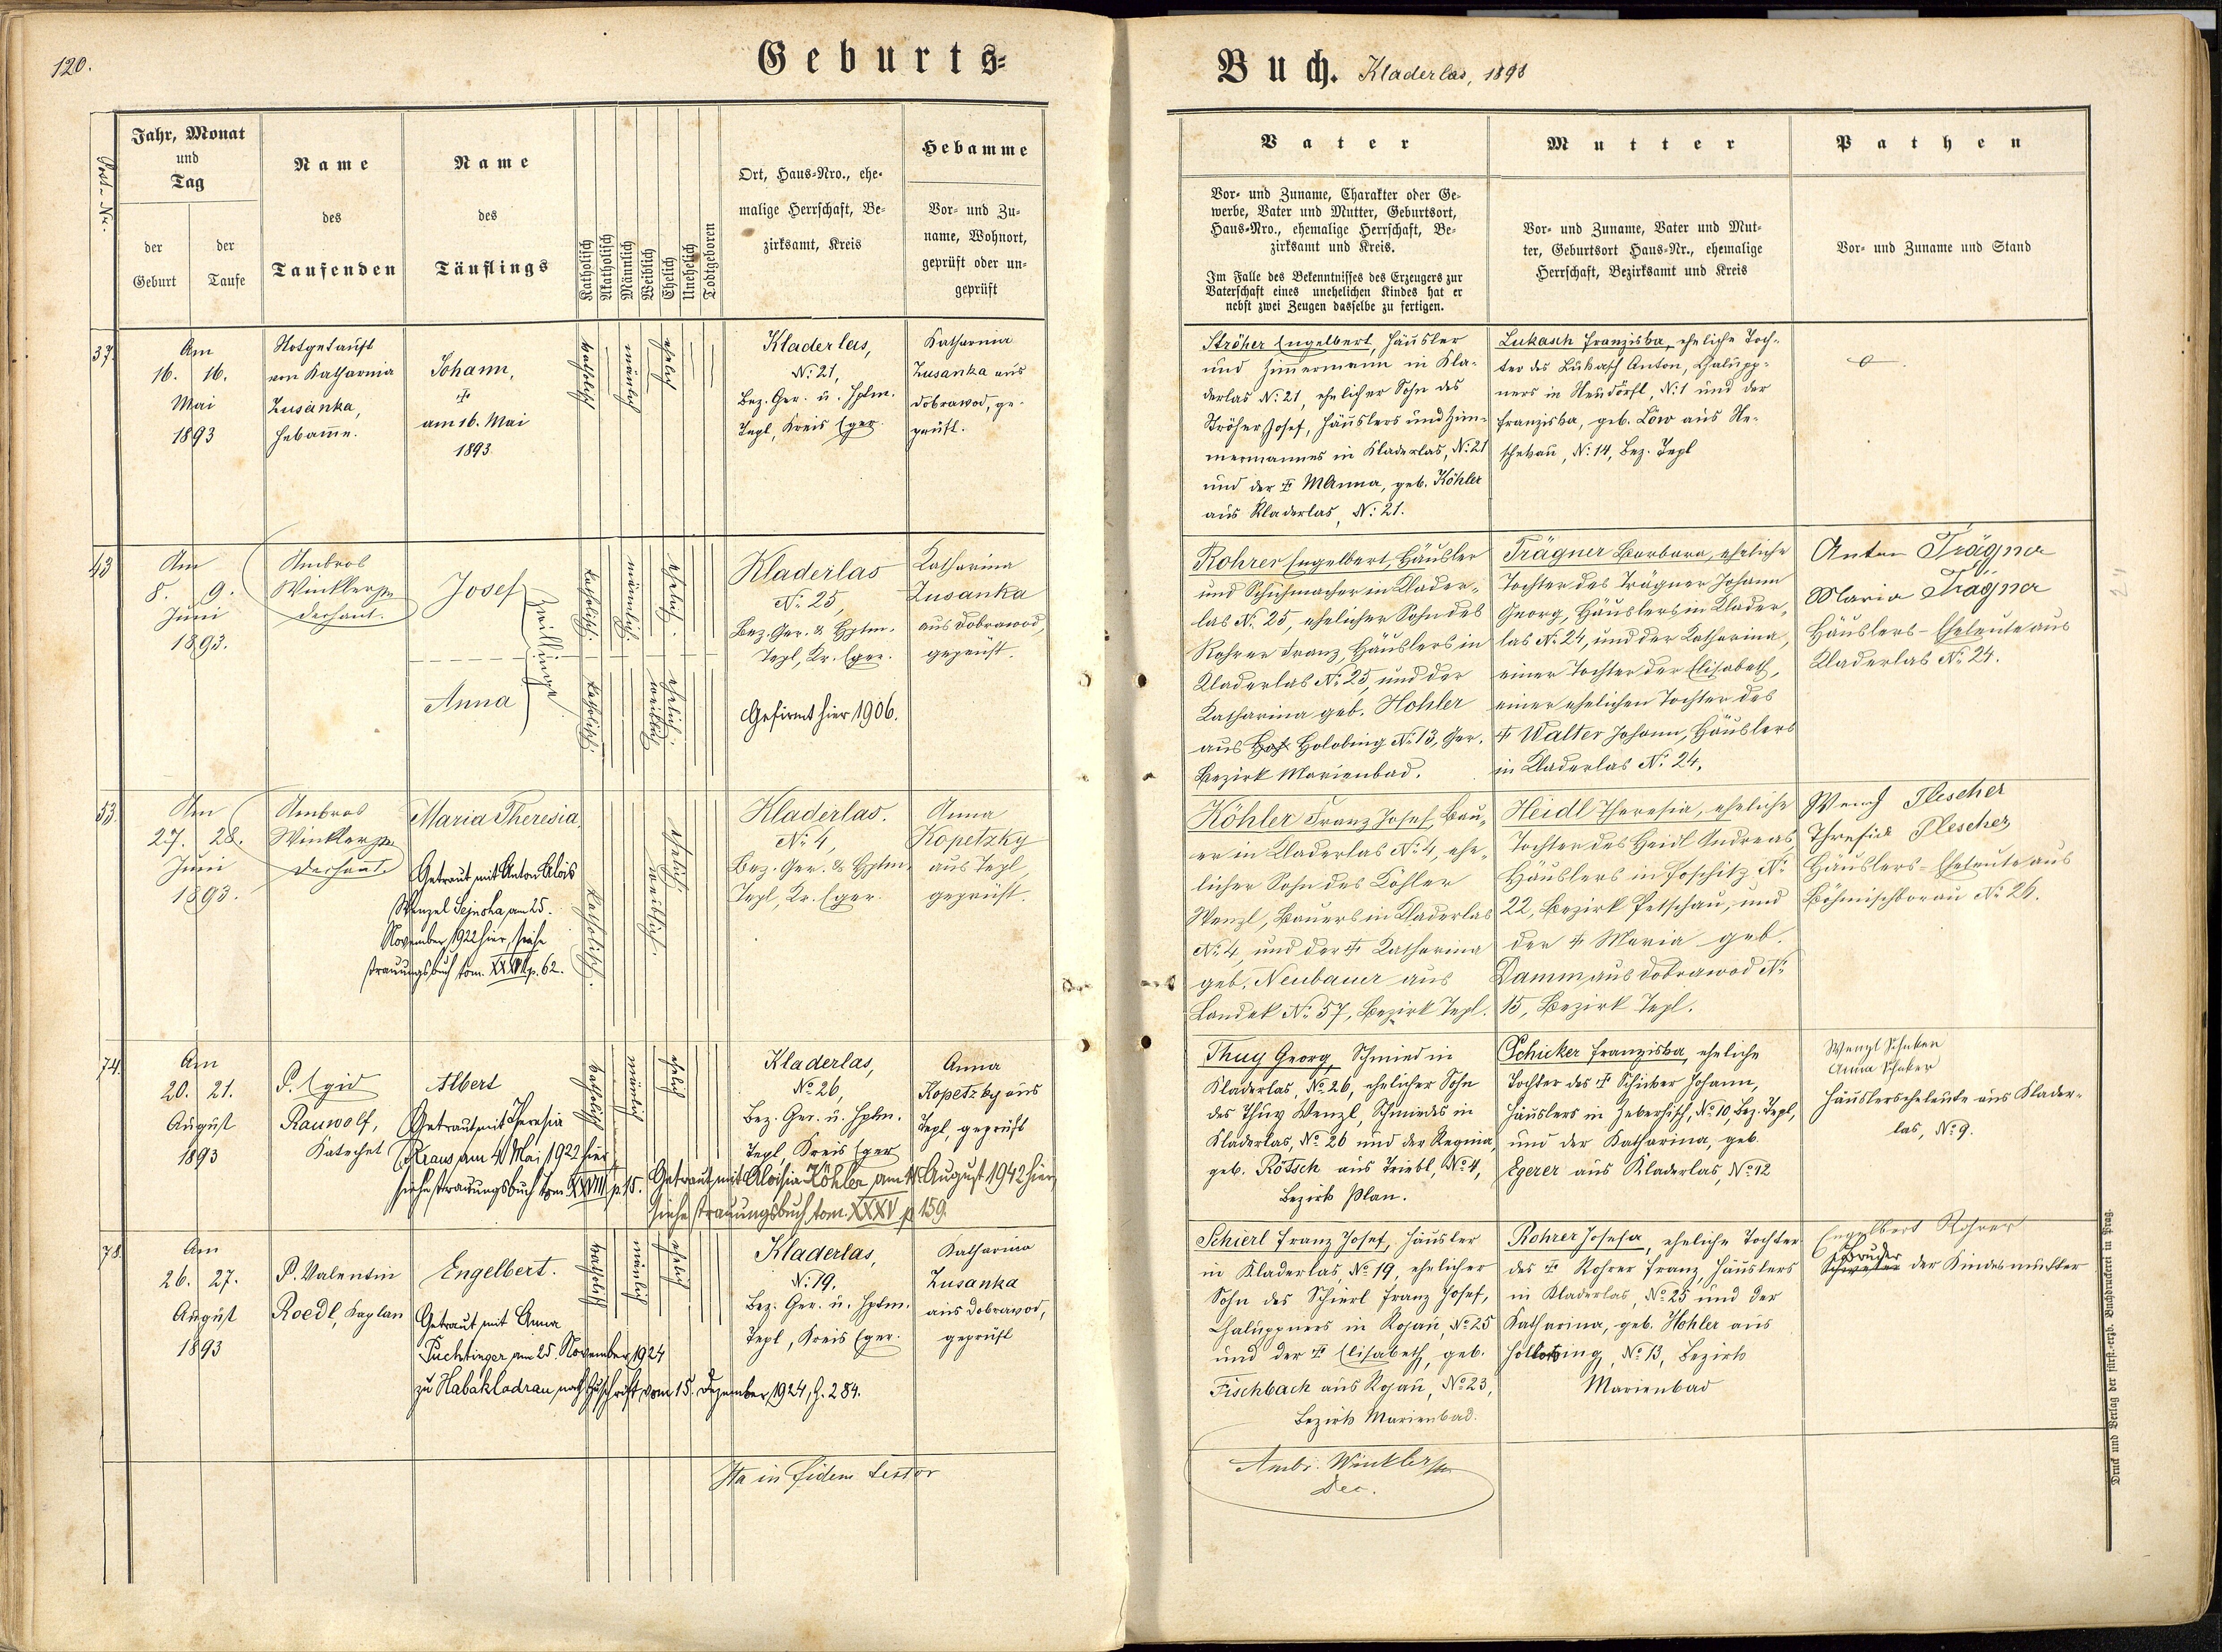 120.
Geburts-
Buch. Kladerlas, 1893
Post-Nr.
Jahr, Monat
und
Tag
der
Geburt
der
Taufe
Name
des
Taufenden
Name
des
Täuflings
Katholisch
Akatholisch
Männlich
Weiblich
Ehelich
Unehelich
Todtgeboren
Ort, Haus-Nro., ehe-
malige Herrschaft, Be-
zirksamt, Kreis
Hebamme
Vor- und Zu-
name, Wohnort,
geprüft oder un-
geprüft
Vater
Vor- und Zuname, Charakter oder Ge-
werbe, Vater und Mutter, Geburtsort,
Haus-Nro., ehemalige Herrschaft, Be-
zirksamt und Kreis.
Im Falle des Bekenntnisses des Erzeugers zur
Vaterschaft eines unehelichen Kindes hat er
nebst zwei Zeugen dasselbe zu fertigen.
Mutter
Vor- und Zuname, Vater und Mut-
ter, Geburtsort Haus-Nr., ehemalige
Herrschaft, Bezirksamt und Kreis
Pathen
Vor- und Zuname und Stand
37.
Am
16. 16.
Mai
1893
Notgetauft
von Katharina
Zusanka,
Hebamme.
Johann,
†
am 16. Mai
1893.
katholisch
männlich
ehelich
Kladerlas,
N: 21,
Bez. Ger. u. Hptm.
Tepl, Kreis Eger
Katharina
Zusanka aus
Dobrawod, ge-
prüft.
Ströher Engelbert, Häusler
und Zimmermann in Kla-
derlas N: 21, ehelicher Sohn des
Ströher Josef, Häuslers und Zim-
mermannes in Kladerlas, N: 21
und der † M Anna, geb. Köhler
aus Kladerlas, N: 21.
Lukasch Franziska, eheliche Toch-
ter des Lukasch Anton, Chalupp-
ners in Neudörfl, N: 1 und der
Franziska, geb. Löw aus
N: 14, Bez. Tepl
43
Am
8. 9.
Juni
1893.
Ambros
Winkler
Dechant.
Josef
Anna
Zwillinge
katholisch.
männlich.
ehelich.
katholisch.
weiblich.
ehelich.
Kladerlas
N: 25,
Bez. Ger. & Hptm.
Tepl, Kr. Eger.
Gefirmt hier 1906.
Katharina
Zusanka
aus Dobrawod,
geprüft.
Rohrer Engelbert, Häusler
und Schuhmacher in Klader-
las N: 25, ehelicher Sohn des
Rohrer Franz, Häuslers in
Kladerlas N: 25, und der
Katharina geb. Hohler
aus Holobing N: 13, Ger.
Bezirk Marienbad.
Trägner Barbara, eheliche
Tochter des Trägner Johann
Georg, Häuslers in Klader-
las N: 24, und der Katharina,
einer Tochter der Elisabeth,
einer ehelichen Tochter des
† Walter Johann, Häuslers
in Kladerlas N: 24.
Anton Trägner
Maria Trägner
Häuslers-Eheleute aus
Kladerlas N: 24.
53.
Am
27. 28.
Juni
1893.
Ambros
Winkler
Dechant.
Maria Theresia.
Getraut mit Anton Alois
Wenzel Sejnoha am 25.
November 1922 hier, siehe
Trauungsbuch tom. XXVIII p. 62.
katholisch.
weiblich.
ehelich.
Kladerlas.
N: 4,
Bez. Ger. & Hptm.
Tepl, Kr. Eger.
Anna
Kopetzky
aus Tepl,
geprüft.
Köhler Franz Josef, Bau-
er in Kladerlas N: 4, ehe-
licher Sohn des Köhler
Wenzl, Bauers in Kladerlas
N: 4, und der † Katharina
geb. Neubauer aus
Landek N: 57, Bezirk Tepl.
Heidl Theresia, eheliche
Tochter des Heidl Andreas,
Häuslers in Poschitz N:
22, Bezirk Petschau, und
der † Maria geb.
Damm aus Dobrawod N:
15, Bezirk Tepl.
Wenzl Plescher
Theresia Plescher
Häuslers-Eheleute aus
Böhmischborau N: 26.
74.
Am
20. 21.
August
1893
P. Egid
Rauwolf,
Katechet
Albert
Getraut mit Theresia
Kraus am 4 Mai 1922 hier,
siehe Trauungsbuch tom. XXVIII p. 15.
Getraut mit Aloisia Köhler am 14. August 1942 hier,
siehe Trauungsbuch tom. XXXV p 159.
katholisch
männlich
ehelich
Kladerlas,
No 26,
Bez. Ger. u. Hptm.
Tepl, Kreis Eger
Anna
Kopetzky aus
Tepl, geprüft
Thuy Georg, Schmied in
Kladerlas, No 26, ehelicher Sohn
des Thuy Wenzl, Schmiedes in
Kladerlas, No 26 und der Regina,
geb. Rötsch aus Triebl, No 4,
Bezirk Plan.
Schicker Franziska, eheliche
Tochter des † Schicker Johann,
Häuslers in Zeberhisch, No 10, Bez. Tepl,
und der Katharina, geb.
Egerer aus Kladerlas, No 12
Wenzl
Anna
Häuslerseheleute aus Klader-
las, No 9.
78.
Am
26. 27.
August
1893
P. Valentin
Roedl, Kaplan
Engelbert.
Getraut mit Anna
Puchtinger am 25. November 1924
zu Habakladrau, nach Zuschrift vom 15. Dezember 1924, Z. 284.
katholisch
männlich
ehelich
Kladerlas,
N: 19,
Bez. Ger. u. Hptm.
Tepl, Kreis Eger.
Katharina
Zusanka
aus Dobrawod,
geprüft
Schierl Franz Josef, Häusler
in Kladerlas, No 19, ehelicher
Sohn des Schierl Franz Josef,
Chaluppners in Rojau, No 25
und der † Elisabeth, geb.
Fischbach aus Rojau, No 23,
Bezirk Marienbad.
Rohrer Josefa, eheliche Tochter
des † Rohrer Franz, Häuslers
in Kladerlas, No 25 und der
Katharina, geb. Hohler aus
Hollobing, No 13, Bezirk
Marienbad
Engelbert Rohrer
Bruder
Schwester der Kindesmutter
Ita in fidem testor
Ambr. Winkler
Dec.
Druck und Verlag der fürst.-erzb. Buchdruckerei in Prag.